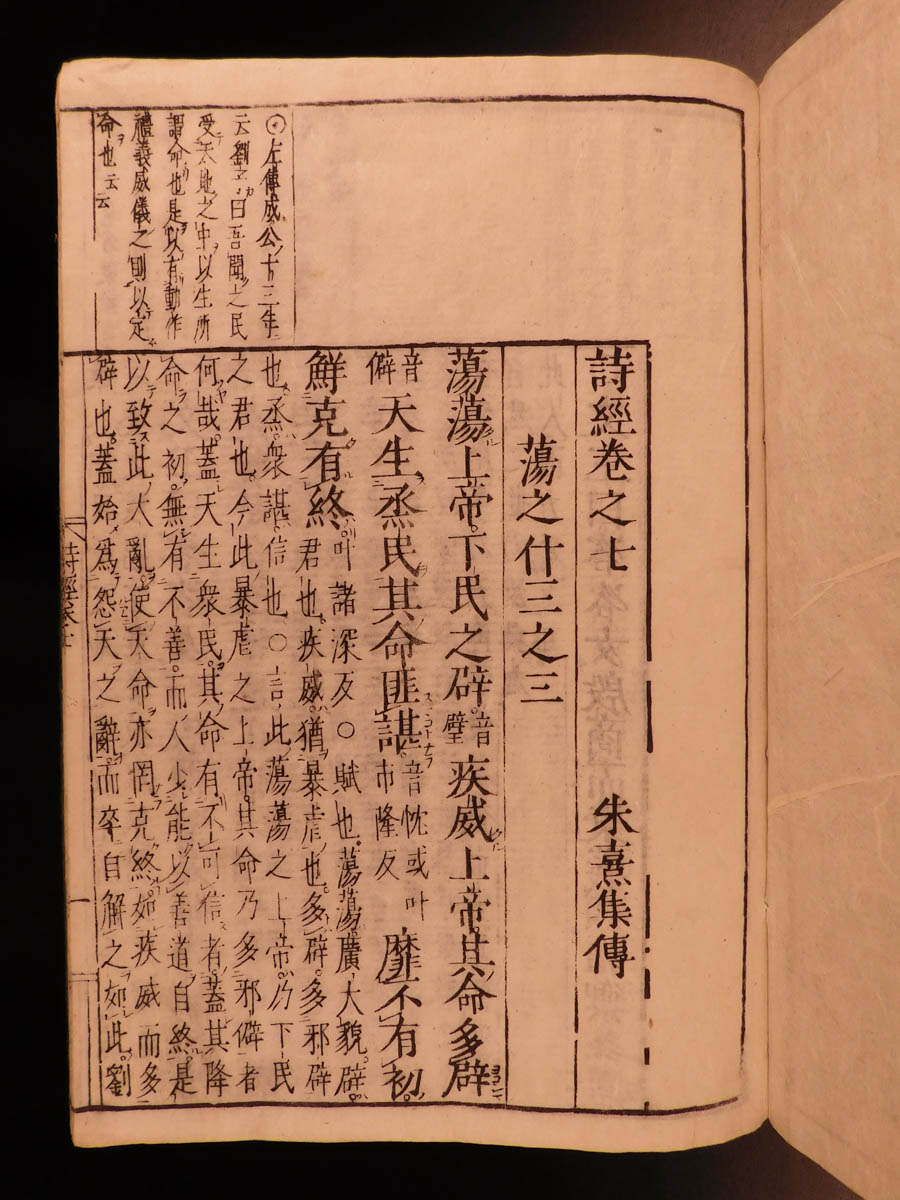 詩經卷之七 朱熹集傳
蕩之什三之三
蕩蕩上帝。下民之辟音璧疾威上帝。其命多辟
音僻天生烝民其命匪諶。音忱或叶市隆反靡不有初。
鮮克有終。叶諸深反○賦也。蕩蕩。廣大貌。辟。
君也。疾威。猶暴虐也。多辟。多邪辟
也。烝。衆。諶。信也。○言此蕩蕩之上帝。乃下民
之君也。今此暴虐之上帝。其命乃多邪僻者
何哉。蓋天生衆民。其命有不可信者。蓋其降
命之初。無有不善。而人少能以善道自終。是
以致此大亂。使天命亦罔克終。如疾威而多
辟也。蓋始爲怨天之辭。而卒自解之。如此。劉
⊙左傳成公十三年
云劉子曰吾聞之民
受天地之中以生所
謂命也是以有動作
禮義威儀之則以定
命也云云
詩經卷七
一